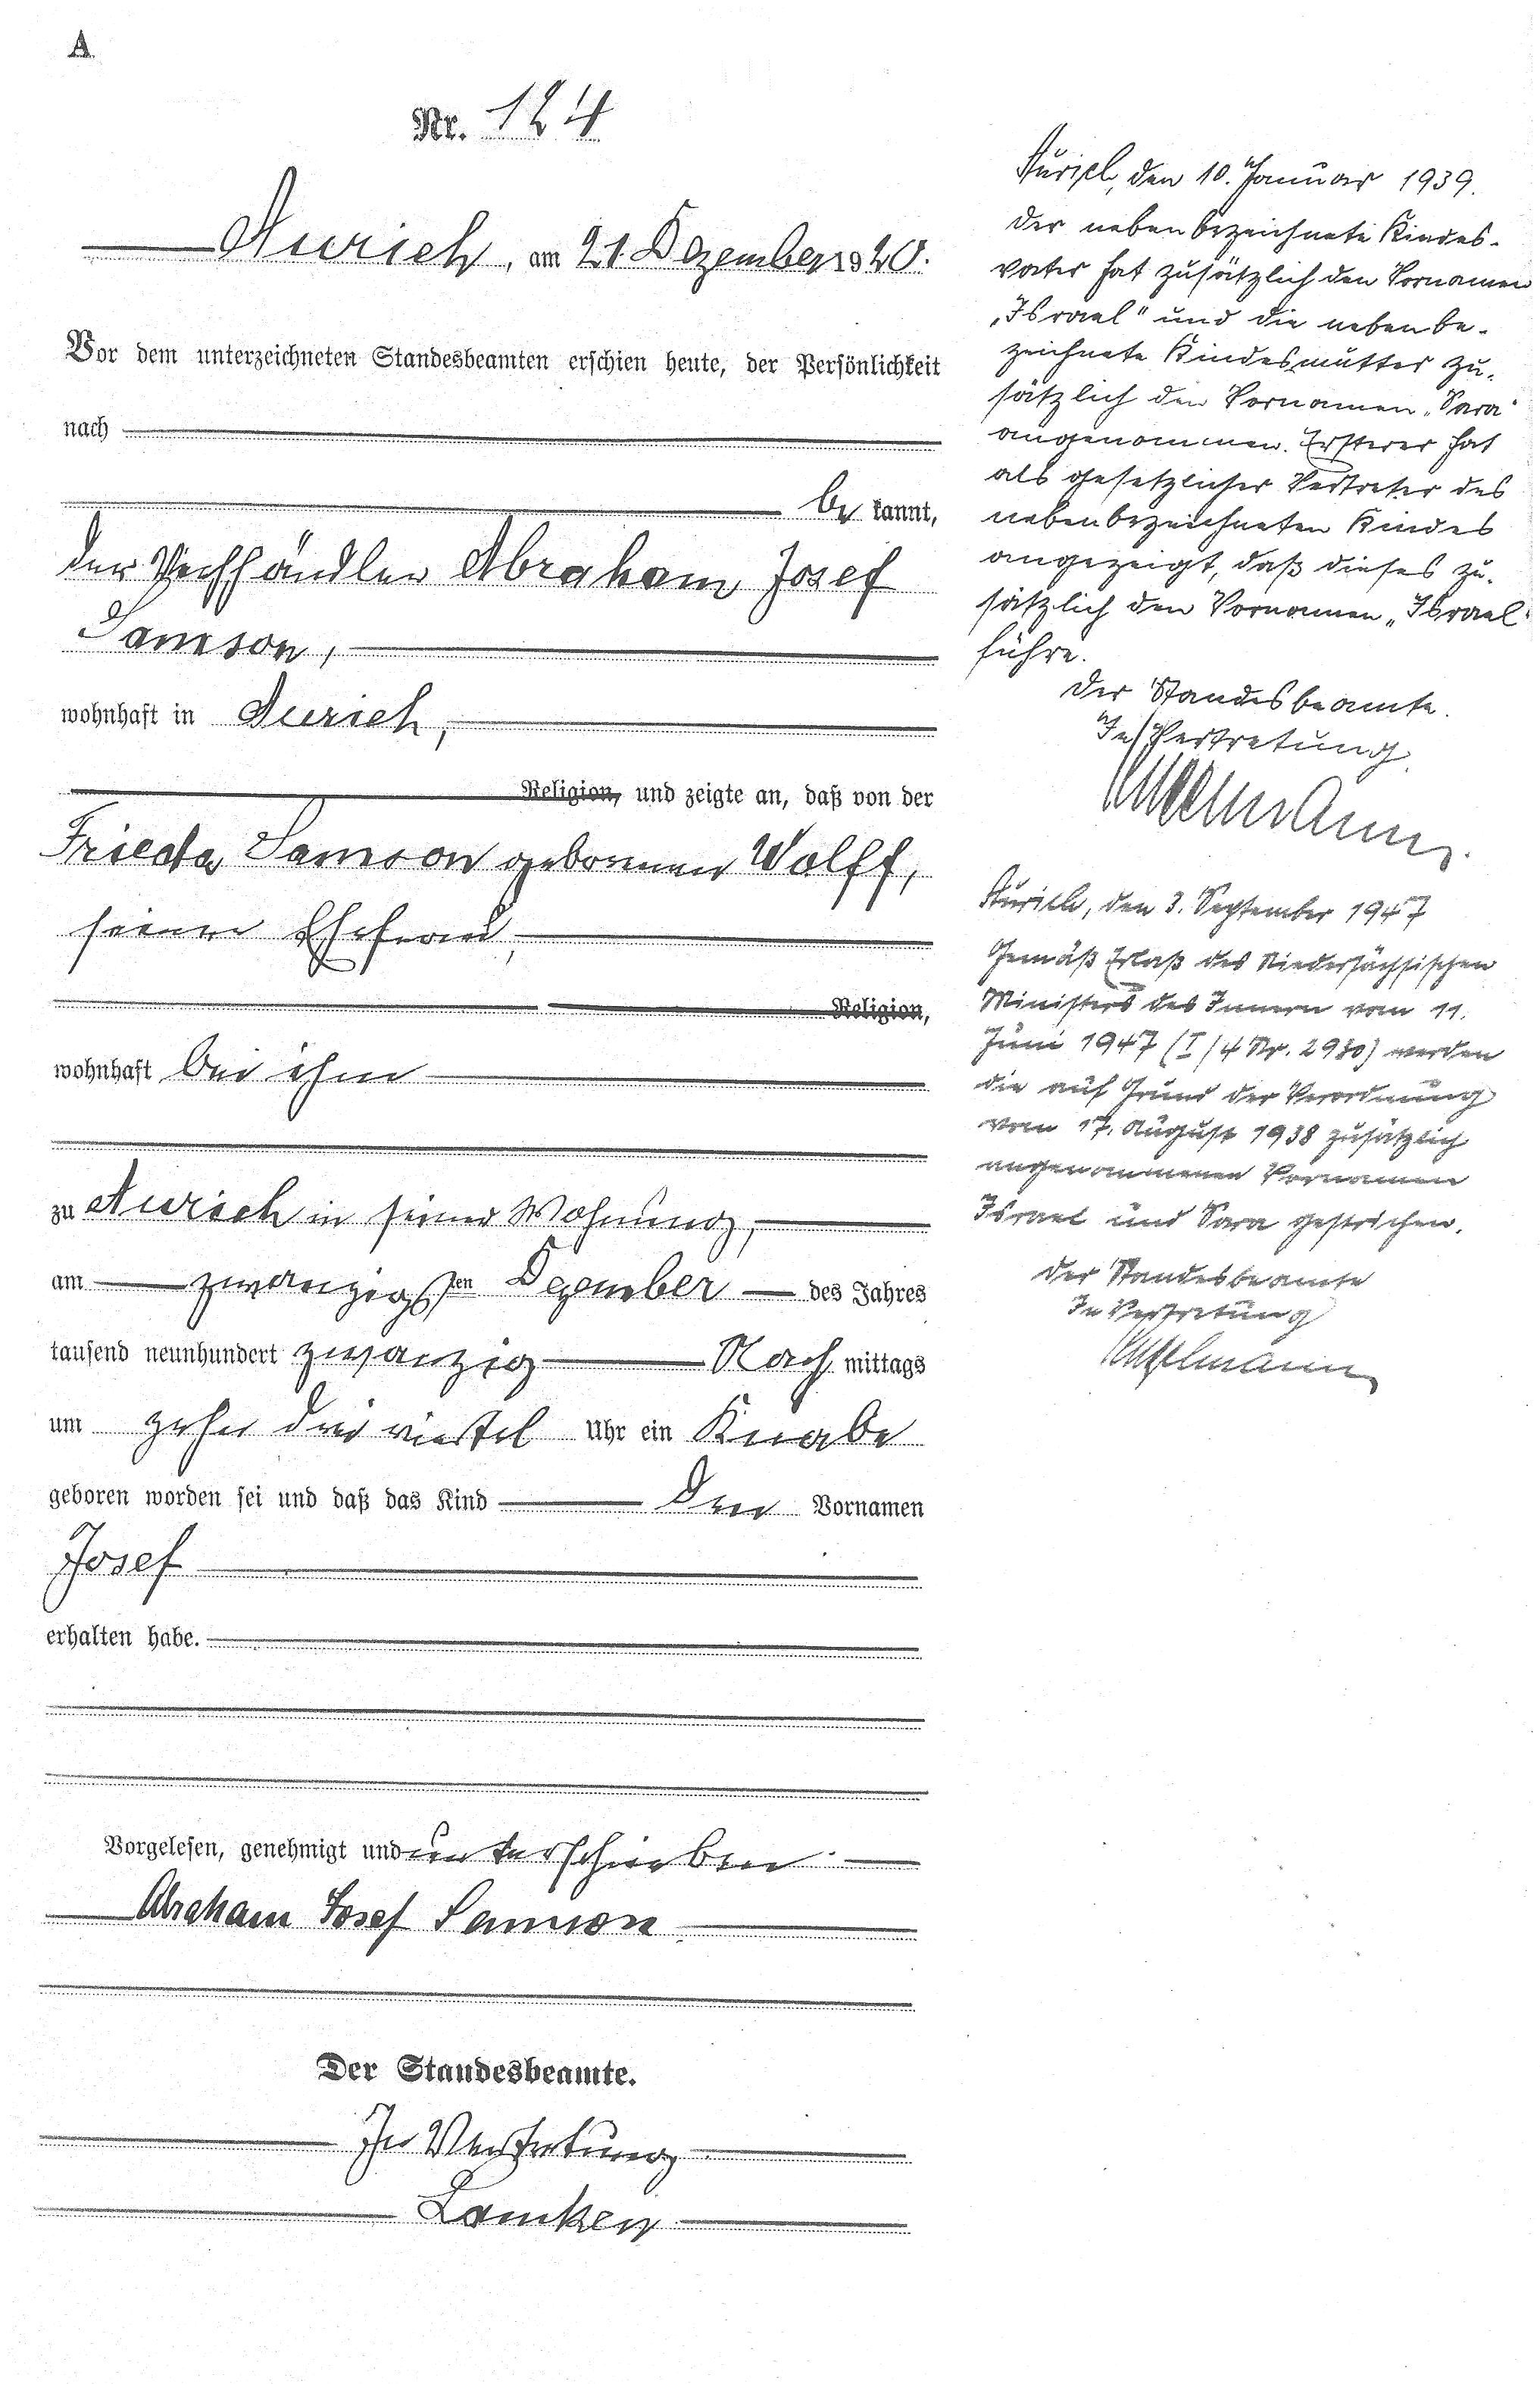 A
Nr. 124
Aurich, am 21. Dezember 1920.
Vor dem unterzeichneten Standesbeamten erschien heute, der Persönlichkeit
nach
be kannt,
der Viehhändler Abraham Josef
Samson,
wohnhaft in Aurich,
Religion, und zeigte an, daß von der
Frieda Samson geborenen Wolff,
seiner Ehefrau,
Religion,
wohnhaft bei ihm
zu Aurich in seiner Wohnung,
am zwanzigsten Dezember des Jahres
tausend neunhundert zwanzig Nach mittags
um zehn drei viertel Uhr ein Knabe
geboren worden sei und daß das Kind den Vornamen
Josef
erhalten habe.
Vorgelesen, genehmigt und unterschrieben.
Abraham Josef Samson
Der Standesbeamte.
In Vertretung
Lamken
Aurich, den 10. Januar 1939.
Der neben bezeichnete Kindes-
vater hat zusätzlich den Vornamen
„Israel" und die neben be-
zeichnete Kindesmutter zu-
sätzlich den Vornamen „Sara"
angenommen. Ersterer hat
als gesetzlicher Vertreter des
neben bezeichneten Kindes
angezeigt, daß dieses zu-
sätzlich den Vornamen „Israel"
führe.
Der Standesbeamte.
In Vertretung.
Aurich, den 3. September 1947
Gemäß Erlaß des Niedersächsischen
Ministers des Innern vom 11.
Juni 1947 (I/4 Nr. 2980) werden
die auf Grund der Verordnung
vom 17. August 1938 zusätzlich
angenommenen Vornamen
Israel und Sara gestrichen.
Der Standesbeamte
In Vertretung